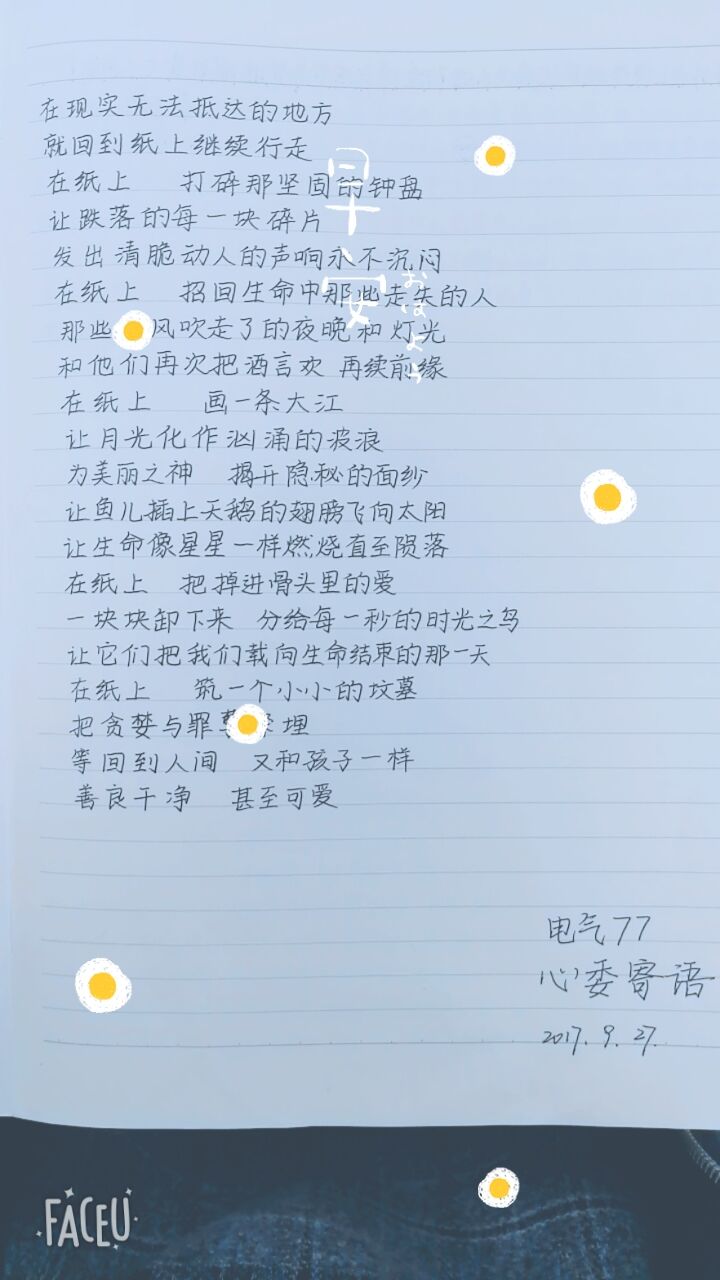 在现实无法抵达的地方
就回到纸上继续行走
在纸上 打碎那坚固的钟盘
让跌落的每一块碎片
发出清脆动人的声响永不沉闷
在纸上 招回生命中那些走失的人
那些 风吹走了的夜晚和灯光
和他们再次把酒言欢 再续前缘
在纸上 画一条大江
让月光化作汹涌的波浪
为美丽之神 揭开隐秘的面纱
让鱼儿插上天鹅的翅膀飞向太阳
让生命像星星一样燃烧直至陨落
在纸上 把掉进骨头里的爱
一块块卸下来 分给每一秒的时光之鸟
让它们把我们载向生命结束的那一天
在纸上 筑一个小小的坟墓
把贪婪与罪 埋
等回到人间 又和孩子一样
善良干净 甚至可爱
早安
おはよう
电气77
心委寄语
2017.9.27.
FACEU